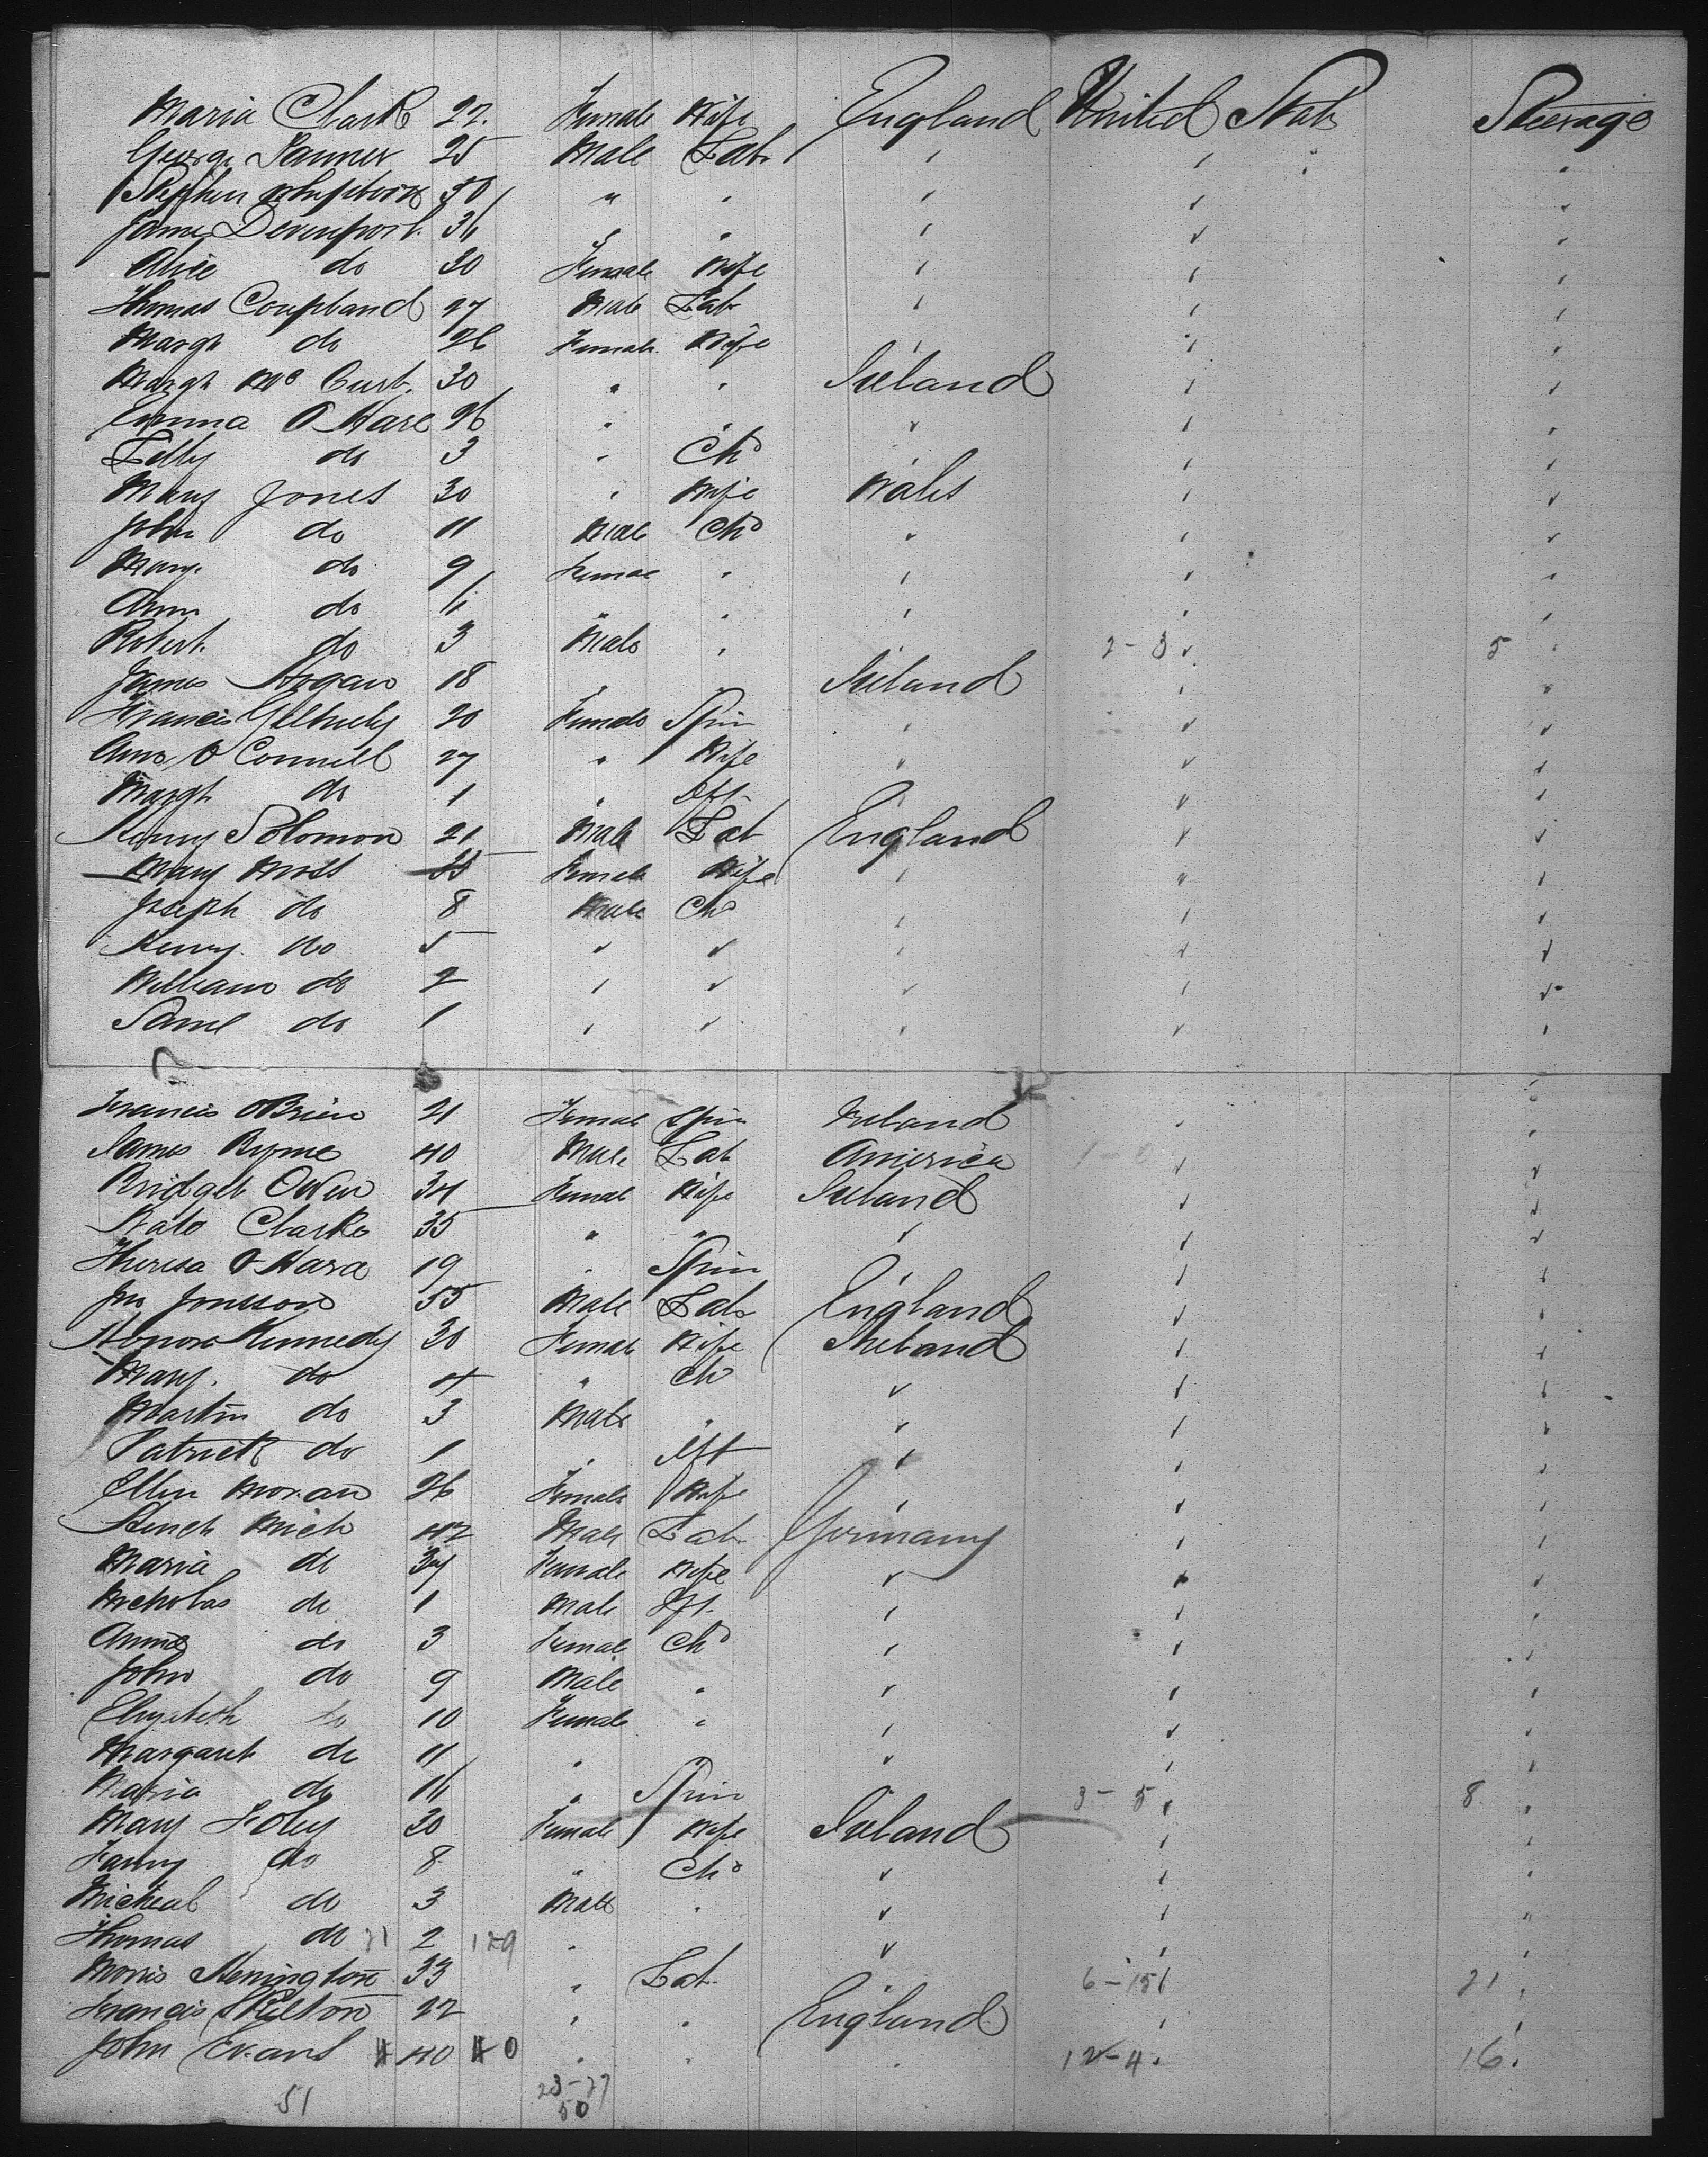 Maria Clark 22 Female Wife England United Stats Steerage
George 25 Male Lab " " "
Stephen 50 " " " " "
James Devenport 36 " " " " "
Alice do 30 Female Wife " " "
Thomas Coupland 27 Male Lab " " "
Margt do 26 Female Wife " " "
Margt Mc 30 " " Ireland " "
Emma O Hare 26 " " " " "
Lilly do 3 " Chd " " "
Mary Jones 30 " Wife Wales " "
John do 11 Male Chd " " "
Mary do 9 Femal " " " "
Ann do 6 " " " " "
Robert do 3 Male " 2-3 " 5 "
James 18 " " Ireland " "
Francis 20 Female Spin " " "
Ann O Connell 27 " Wife " " "
Margt do 1 " Ift " " "
Henry Solomon 21 Male Lab England " "
Mary Moss 25 Female Wife " " "
Joseph do 8 Male Chd " " "
Henry do 5 " " " " "
William do 2 " " " " "
Saml do 1 " " " " "
Francis OBrien 21 Female Spin Ireland " "
James Byrne 40 Male Lab America " "
Bridget 34 Female Wife Ireland " "
Kate Clarke 35 " " " " "
Theresa O Hara 19 " Spin " " "
Jno Jonsson 55 Male Lab England " "
Honora Kennedy 30 Female Wife Ireland " "
Mary do 4 " Chd " " "
Martin do 3 Male " " " "
Patrick do 1 " Ift " " "
Ellen Moran 26 Female Wife " " "
Mich 42 Male Lab Germany " "
Maria do 37 Female Wife " " "
Nicholas do 1 Male Ift " " "
Annie do 3 Female Chd " " "
John do 9 Male " " " "
Elizabeth do 10 Female " " " "
Margaret do 11 " " " " "
Maria do 16 " Spin 3-5 " 8 "
Mary Foley 30 Female Wife Ireland " "
Fanny do 8 " Chd " " "
Micheal do 3 Male " " " "
Thomas do 21 2 129 " " " "
Morris Henington 33 " Lab " 6-15 " 21 "
Francis Skelton 22 " " England " "
John Evans # 40 # 0 " " " 12-4 " 16 "
51 23-27
50